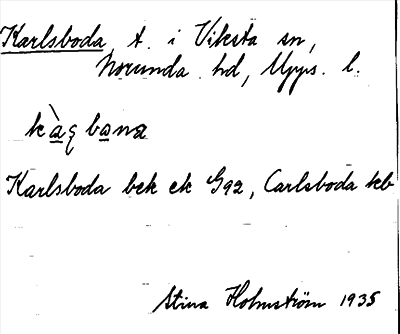 Karlsboda, t. i Viksta sn,
Norunda hd, Upps. l.
Karlsboda bek ek G92, Carlsboda kb
Stina Holmström 1935